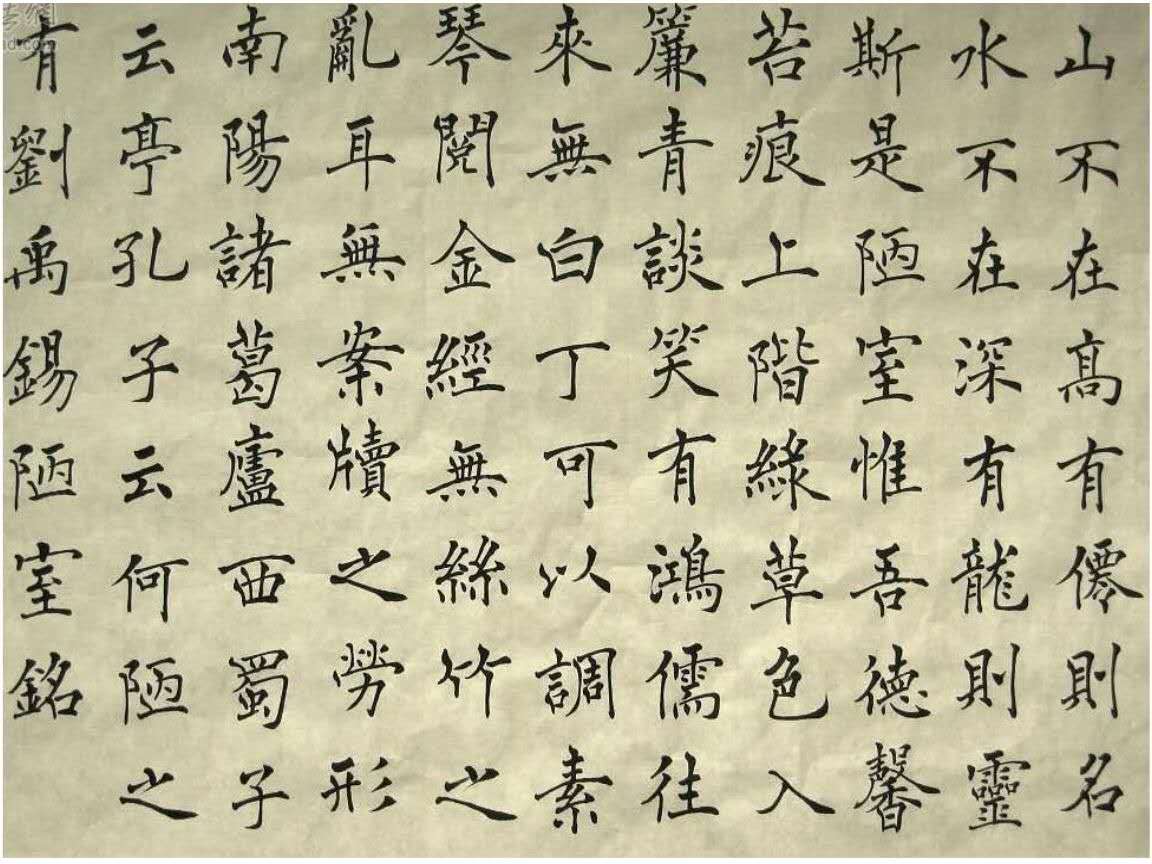 山不在高有僊則名
水不在深有龍則靈
斯是陋室惟吾德馨
苔痕上階綠草色入
簾青談笑有鴻儒往
來無白丁可以調素
琴閱金經無絲竹之
亂耳無案牘之勞形
南陽諸葛廬西蜀子
云亭孔子云何陋之
有劉禹錫陋室銘